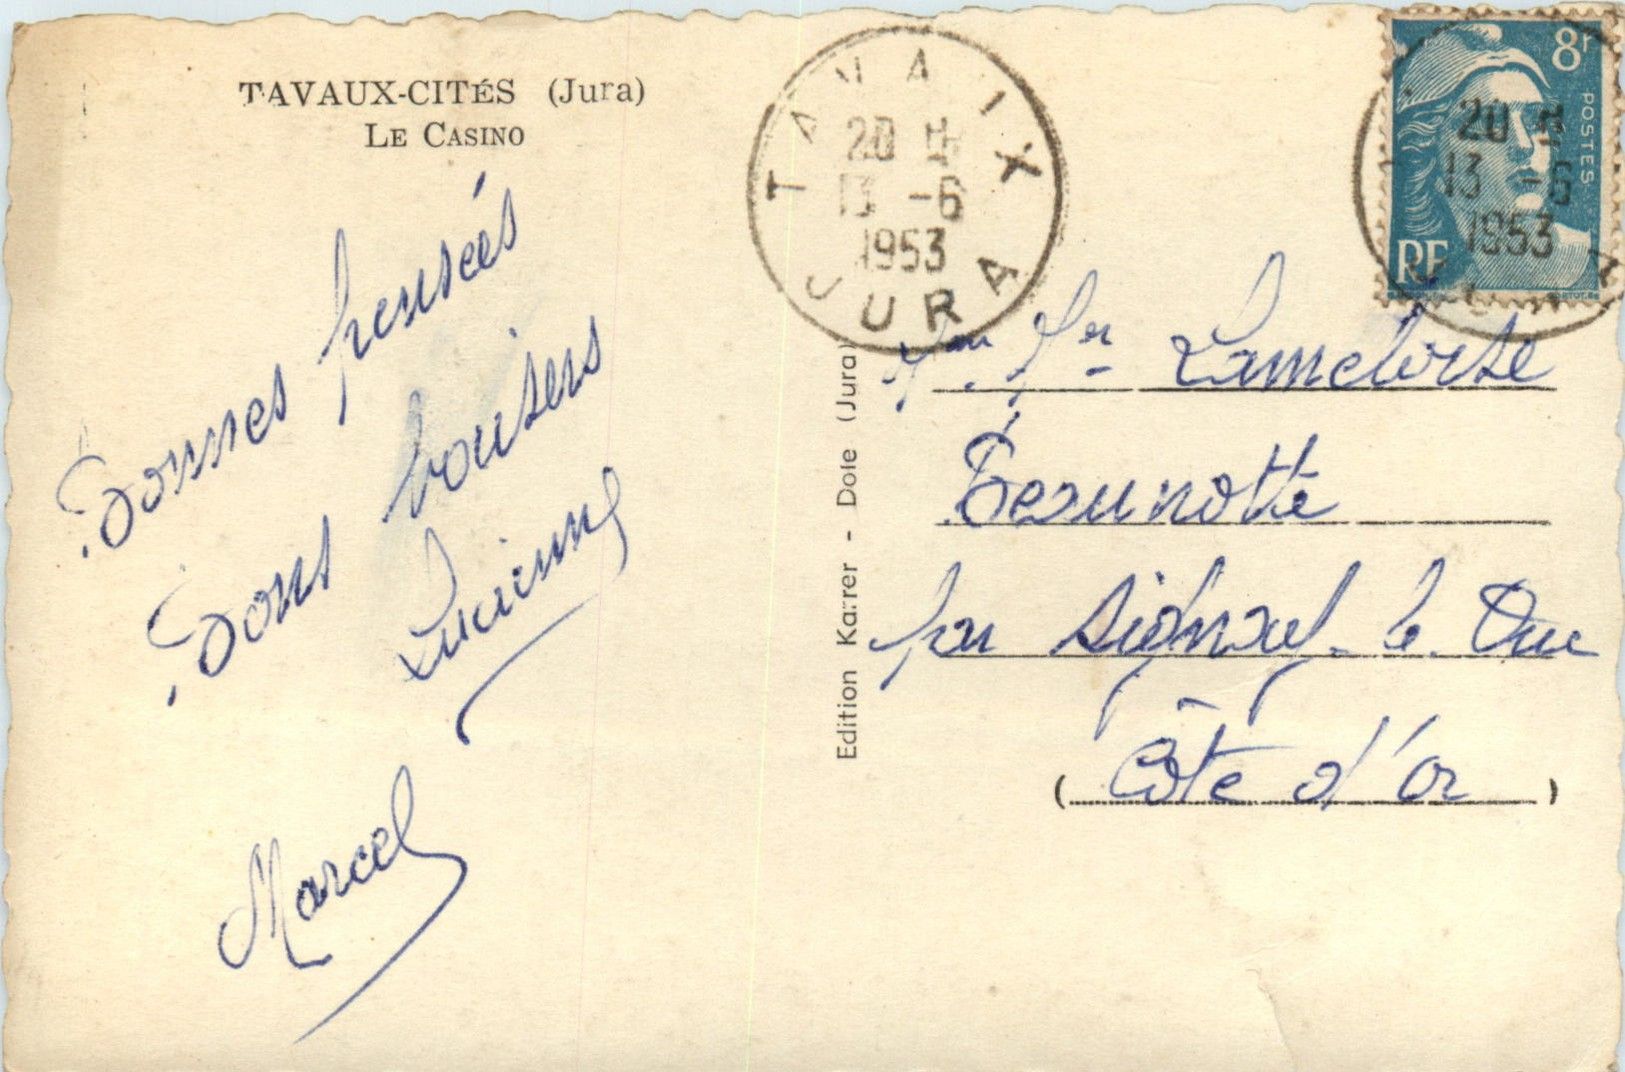 TAVAUX-CITÉS (Jura)
LE CASINO
Bonnes pensées
Bons baisers
Lucienne
Marcel
Edition Karrer - Dole (Jura)
TAVAUX
20 H
13 -6
1953
JURA
8F
POSTES
RF
20 H
13 -6
1953
Mme Mr Lamelorse
Beaunotte
par Aignay-le-Duc
(Côte d'or)